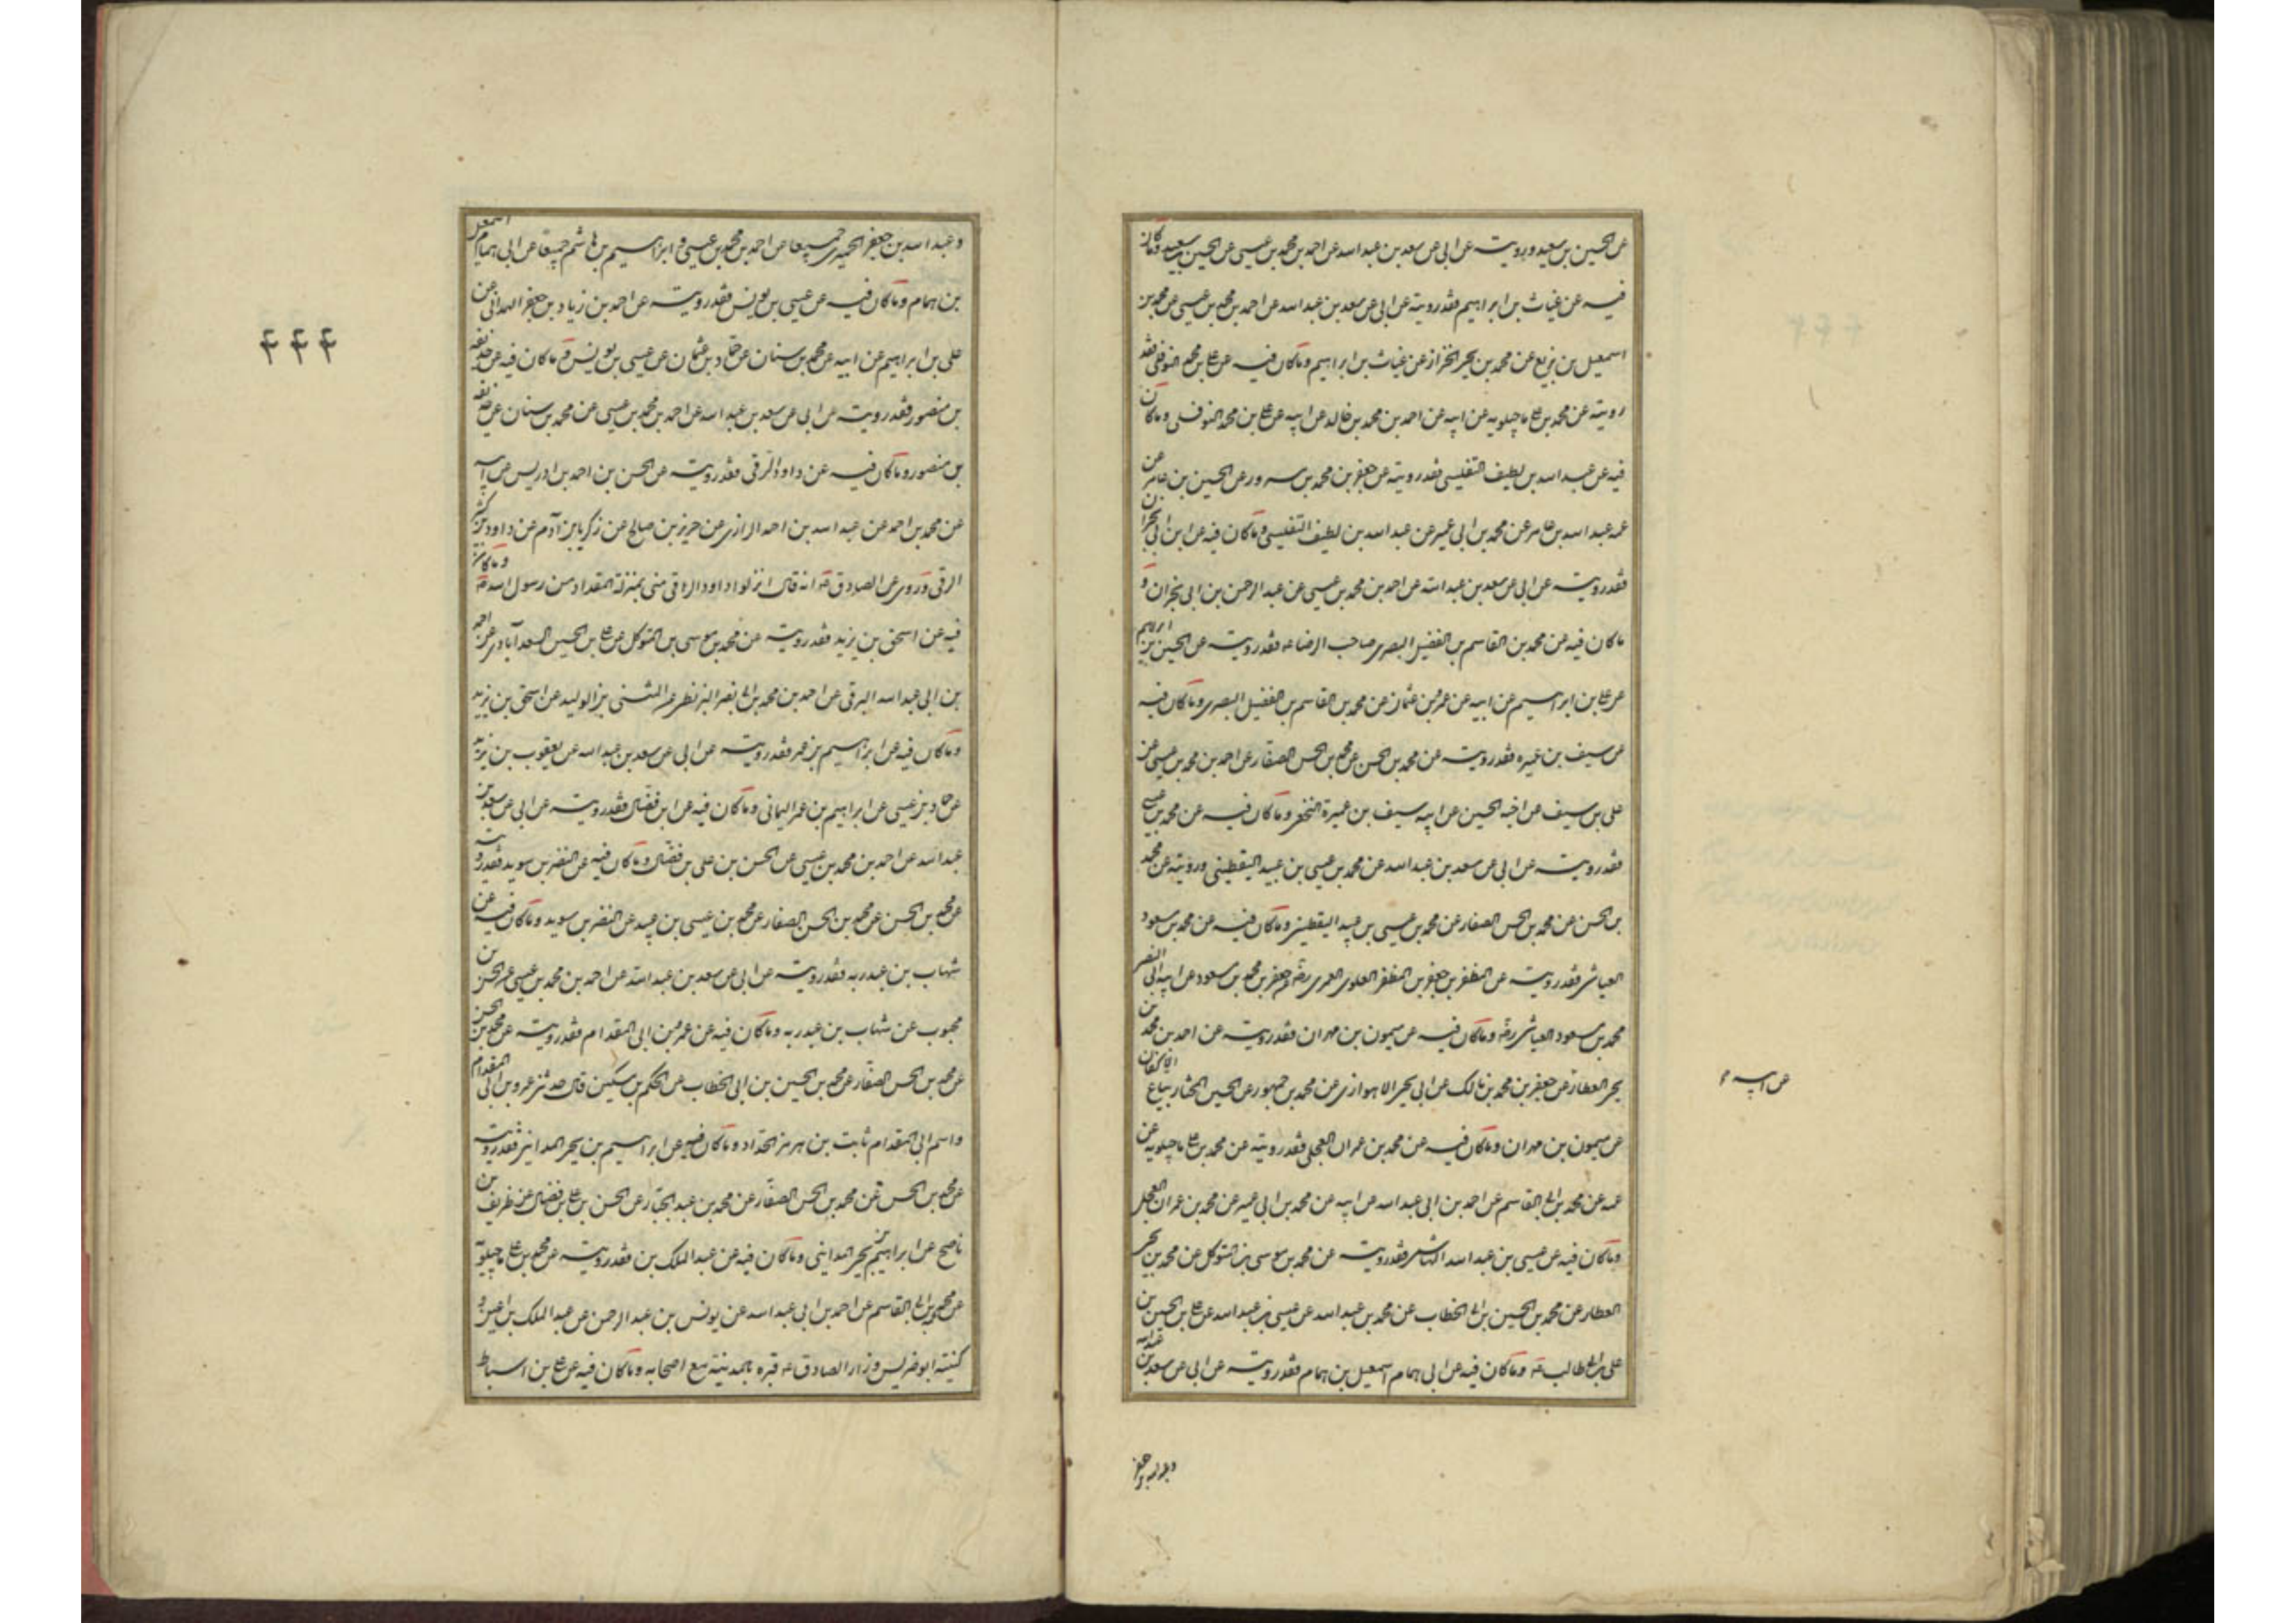 عن الحسين بن سعيد ورويته عن ابى عن سعد بن عبد الله عن احمد بن محمد بن عيسى عن الحسين بن سعيد وما كان
فيه عن غياث بن ابراهيم فقد رويته عن ابى عن سعد بن عبد الله عن احمد بن محمد بن عيسى عن محمد بن
اسمعيل بن بزيع عن محمد بن يحيى الخزاز عن غياث بن ابراهيم وما كان فيه عن على بن محمد النوفلى فقد
رويته عن محمد بن على ماجيلويه عن ابيه عن احمد بن محمد بن خالد عن ابيه عن على بن محمد النوفلى وما كان
فيه عن عبد الله بن لطيف التفليسى فقد رويته عن جعفر بن محمد بن مسرور عن الحسين بن عامر عن
عمه عبد الله بن عامر عن محمد بن ابى عمير عن عبد الله بن لطيف التفليسى وما كان فيه عن ابن ابى نجران
فقد رويته عن ابى عن سعد بن عبد الله عن احمد بن محمد بن عيسى عن عبد الرحمن بن ابى نجران و
ما كان فيه عن محمد بن القاسم بن الفضيل البصرى صاحب الرضا ع فقد رويته عن الحسين بن ابراهيم
عن على بن ابراهيم عن ابيه عن عمرو بن عثمان عن محمد بن القاسم بن الفضيل البصرى وما كان فيه
عن سيف بن عميره فقد رويته عن محمد بن الحسن عن محمد بن الحسن الصفار عن احمد بن محمد بن عيسى عن
على بن سيف عن اخيه الحسين عن ابيه سيف بن عميرة النخعى وما كان فيه عن محمد بن عيسى
فقد رويته عن ابى عن سعد بن عبد الله عن محمد بن عيسى بن عبيد اليقطينى ورويته عن محمد
بن الحسن عن محمد بن الحسن الصفار عن محمد بن عيسى بن عبيد اليقطينى وما كان فيه عن محمد بن مسعود
العياشى فقد رويته عن المظفر بن جعفر بن المظفر العلوى العمرى رضه عن جعفر بن محمد بن مسعود عن ابيه ابى النضر
محمد بن مسعود العياشى رضه وما كان فيه عن ميمون بن مهران فقد رويته عن احمد بن محمد بن
يحيى العطار عن جعفر بن محمد بن مالك عن ابى يحيى الاهوازى عن محمد بن جمهور عن الحسين المختار بياع الاكفان
عن ميمون بن مهران وما كان فيه عن محمد بن عمران العجلى فقد رويته عن محمد بن على ماجيلويه عن
عمه عن محمد بن ابى القاسم عن احمد بن ابى عبد الله عن ابيه عن محمد بن ابى عمير عن محمد بن عمران العجلى
وما كان فيه عن عيسى بن عبد الله الهاشمى فقد رويته عن محمد بن موسى بن المتوكل عن محمد بن يحيى
العطار عن محمد بن الحسين بن ابى الخطاب عن محمد بن عبد الله عن عيسى بن عبد الله عن على بن الحسين بن
على بن ابى طالب ع وما كان فيه عن ابى همام اسمعيل بن همام فقد رويته عن ابى عن سعد بن عبد الله
عن ابيه
وعبد الله بن جعفر
وعبد الله بن جعفر الحميرى جميعا عن احمد بن محمد بن عيسى و ابراهيم بن هاشم جميعا عن ابى همام اسمعيل
بن همام وما كان فيه عن عيسى بن يونس فقد رويته عن احمد بن زياد بن جعفر الهمدانى عن
على بن ابراهيم عن ابيه عن محمد بن سنان عن حماد بن عثمان عن عيسى بن يونس وما كان فيه عن حذيفه
بن منصور فقد رويته عن ابى عن سعد بن عبد الله عن احمد بن محمد بن عيسى عن محمد بن سنان عن حذيفه
بن منصور وما كان فيه عن داود الرقى فقد رويته عن الحسن بن احمد بن ادريس عن ابيه
عن محمد بن احمد عن عبد الله بن احمد الرازى عن حريز بن صالح عن زكريا بن آدم عن داود بن كثير
الرقى وروى عن الصادق ع انه قال انزلوا داود الرقى منى بمنزلة المقداد من رسول الله ص وما كان
فيه عن اسحق بن يزيد فقد رويته عن محمد بن موسى بن المتوكل عن على بن الحسين السعد آبادى عن احمد
بن ابى عبد الله البرقى عن احمد بن محمد بن ابى نصر البزنطى عن المثنى بن الوليد عن اسحق بن يزيد
وما كان فيه عن ابراهيم بن عمر فقد رويته عن ابى عن سعد بن عبد الله عن يعقوب بن يزيد
عن حماد بن عيسى عن ابراهيم بن عمر اليمانى وما كان فيه عن ابن فضال فقد رويته عن ابى عن سعد بن
عبد الله عن احمد بن محمد بن عيسى عن الحسن بن على بن فضال وما كان فيه عن النضر بن سويد فقد رويته
عن محمد بن الحسن عن محمد بن الحسن الصفار عن محمد بن عيسى بن عبيد عن النضر بن سويد وما كان فيه عن
شهاب بن عبد ربه فقد رويته عن ابى عن سعد بن عبد الله عن احمد بن محمد بن عيسى عن الحسن بن
محبوب عن شهاب بن عبد ربه وما كان فيه عن عمرو بن ابى المقدام فقد رويته عن محمد بن الحسن
عن محمد بن الحسن الصفار عن محمد بن الحسين بن ابى الخطاب عن الحكم بن مسكين قال حدثنى عمرو بن ابى المقدام
واسم ابى المقدام ثابت بن هرمز الحداد وما كان فيه عن ابراهيم بن يحيى المداينى فقد رويته
عن محمد بن الحسن عن محمد بن الحسن الصفار عن محمد بن عبد الجبار عن الحسن بن على بن فضال عن ظريف بن
ناصح عن ابراهيم بن يحيى المداينى وما كان فيه عن عبد الملك بن فقد رويته عن محمد بن على ماجيلويه
عن محمد بن ابى القاسم عن احمد بن ابى عبد الله عن يونس بن عبد الرحمن عن عبد الملك بن اعين و
كنيته ابو ضريس وزار الصادق ع قبره بالمدينة مع اصحابه وما كان فيه عن على بن اسباط
۴۴۴